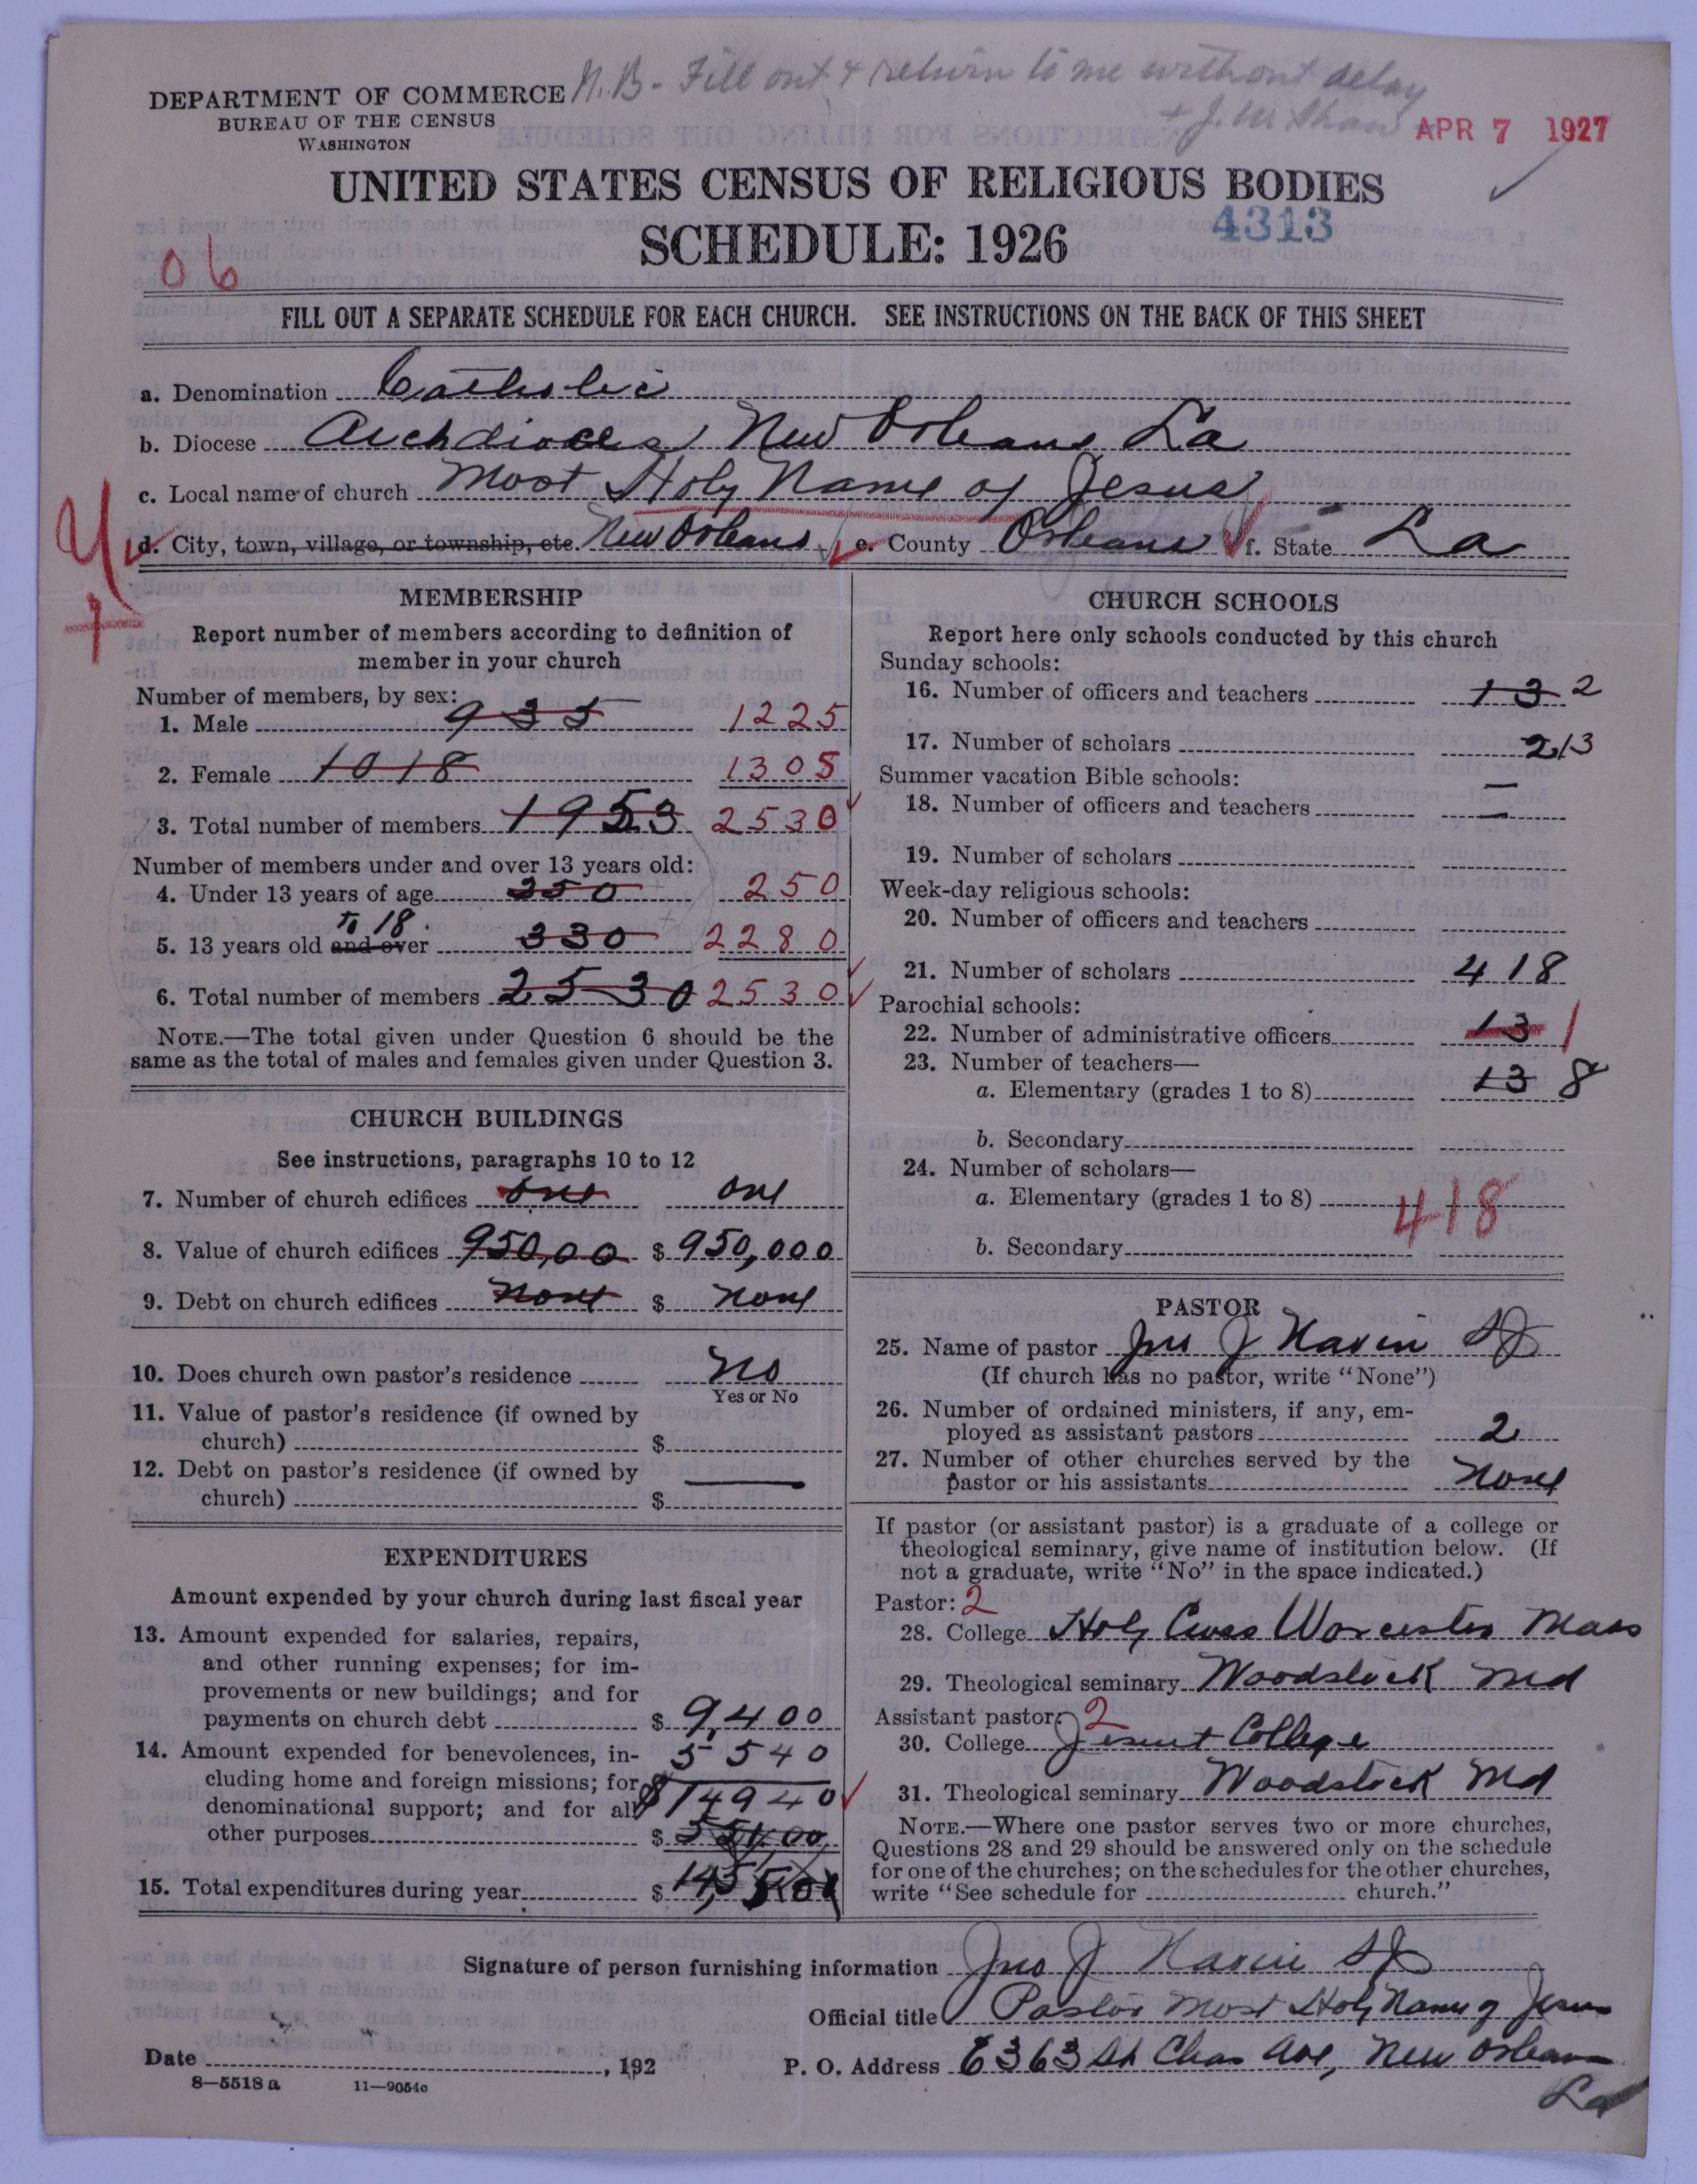 N.B - Fill out & return to me without delay
+ J. W. Shaw
DEPARTMENT OF COMMERCE
BUREAU OF THE CENSUS
WASHINGTON
APR 7 1927
UNITED STATES CENSUS OF RELIGIOUS BODIES
SCHEDULE: 1926
4313
06
FILL OUT A SEPARATE SCHEDULE FOR EACH CHURCH. SEE INSTRUCTIONS ON THE BACK OF THIS SHEET
a. Denomination Catholic
b. Diocese Archdiocese New Orleans La
c. Local name of church Most Holy Name of Jesus
d. City, town, village, or township, etc. New Orleans e. County Orleans f. State La
MEMBERSHIP
Report number of members according to definition of
member in your church
Number of members, by sex:
1. Male 935 1225
2. Female 1018 1305
3. Total number of members 1953 2530
Number of members under and over 13 years old:
4. Under 13 years of age 250
to 18
5. 13 years old and over 330 2280
6. Total number of members 2530 2530
NOTE.—The total given under Question 6 should be the
same as the total of males and females given under Question 3.
CHURCH BUILDINGS
See instructions, paragraphs 10 to 12
7. Number of church edifices one one
8. Value of church edifices 950,00 $ 950,000
9. Debt on church edifices none $ none
10. Does church own pastor's residence No
Yes or No
11. Value of pastor's residence (if owned by
church) $
12. Debt on pastor's residence (if owned by
church) $
EXPENDITURES
Amount expended by your church during last fiscal year
13. Amount expended for salaries, repairs,
and other running expenses; for im-
provements or new buildings; and for
payments on church debt $ 9,400
14. Amount expended for benevolences, in- 5540
cluding home and foreign missions; for
denominational support; and for all $14940
other purposes $
15. Total expenditures during year $
CHURCH SCHOOLS
Report here only schools conducted by this church
Sunday schools:
16. Number of officers and teachers 13 2
17. Number of scholars 213
Summer vacation Bible schools: —
18. Number of officers and teachers —
19. Number of scholars
Week-day religious schools:
20. Number of officers and teachers
21. Number of scholars 418
Parochial schools:
22. Number of administrative officers 13 1
23. Number of teachers—
a. Elementary (grades 1 to 8) 13 8
b. Secondary
24. Number of scholars—
a. Elementary (grades 1 to 8) 418
b. Secondary
PASTOR
25. Name of pastor Jno J Navin SJ
(If church has no pastor, write "None")
26. Number of ordained ministers, if any, em-
ployed as assistant pastors 2
27. Number of other churches served by the
pastor or his assistants None
If pastor (or assistant pastor) is a graduate of a college or
theological seminary, give name of institution below. (If
not a graduate, write "No" in the space indicated.)
Pastor: 2
28. College Holy Cross Worcester Mass
29. Theological seminary Woodstock Md
Assistant pastor: 2
30. College Jesuit College
31. Theological seminary Woodstock Md
NOTE.—Where one pastor serves two or more churches,
Questions 28 and 29 should be answered only on the schedule
for one of the churches; on the schedules for the other churches,
write "See schedule for church."
Signature of person furnishing information Jno J Navin SJ
Official title Pastor Most Holy Name of Jesus
Date , 192 P. O. Address 6363 St Chas Ave, New Orleans
La
8—5518 a 11—9054c